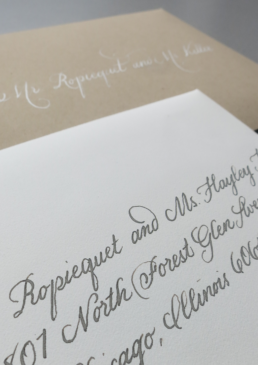 Ropiequet and Mr.
Ropiequet and Ms. Hayley
801 North Forest Glen Ave
Chicago, Illinois 606